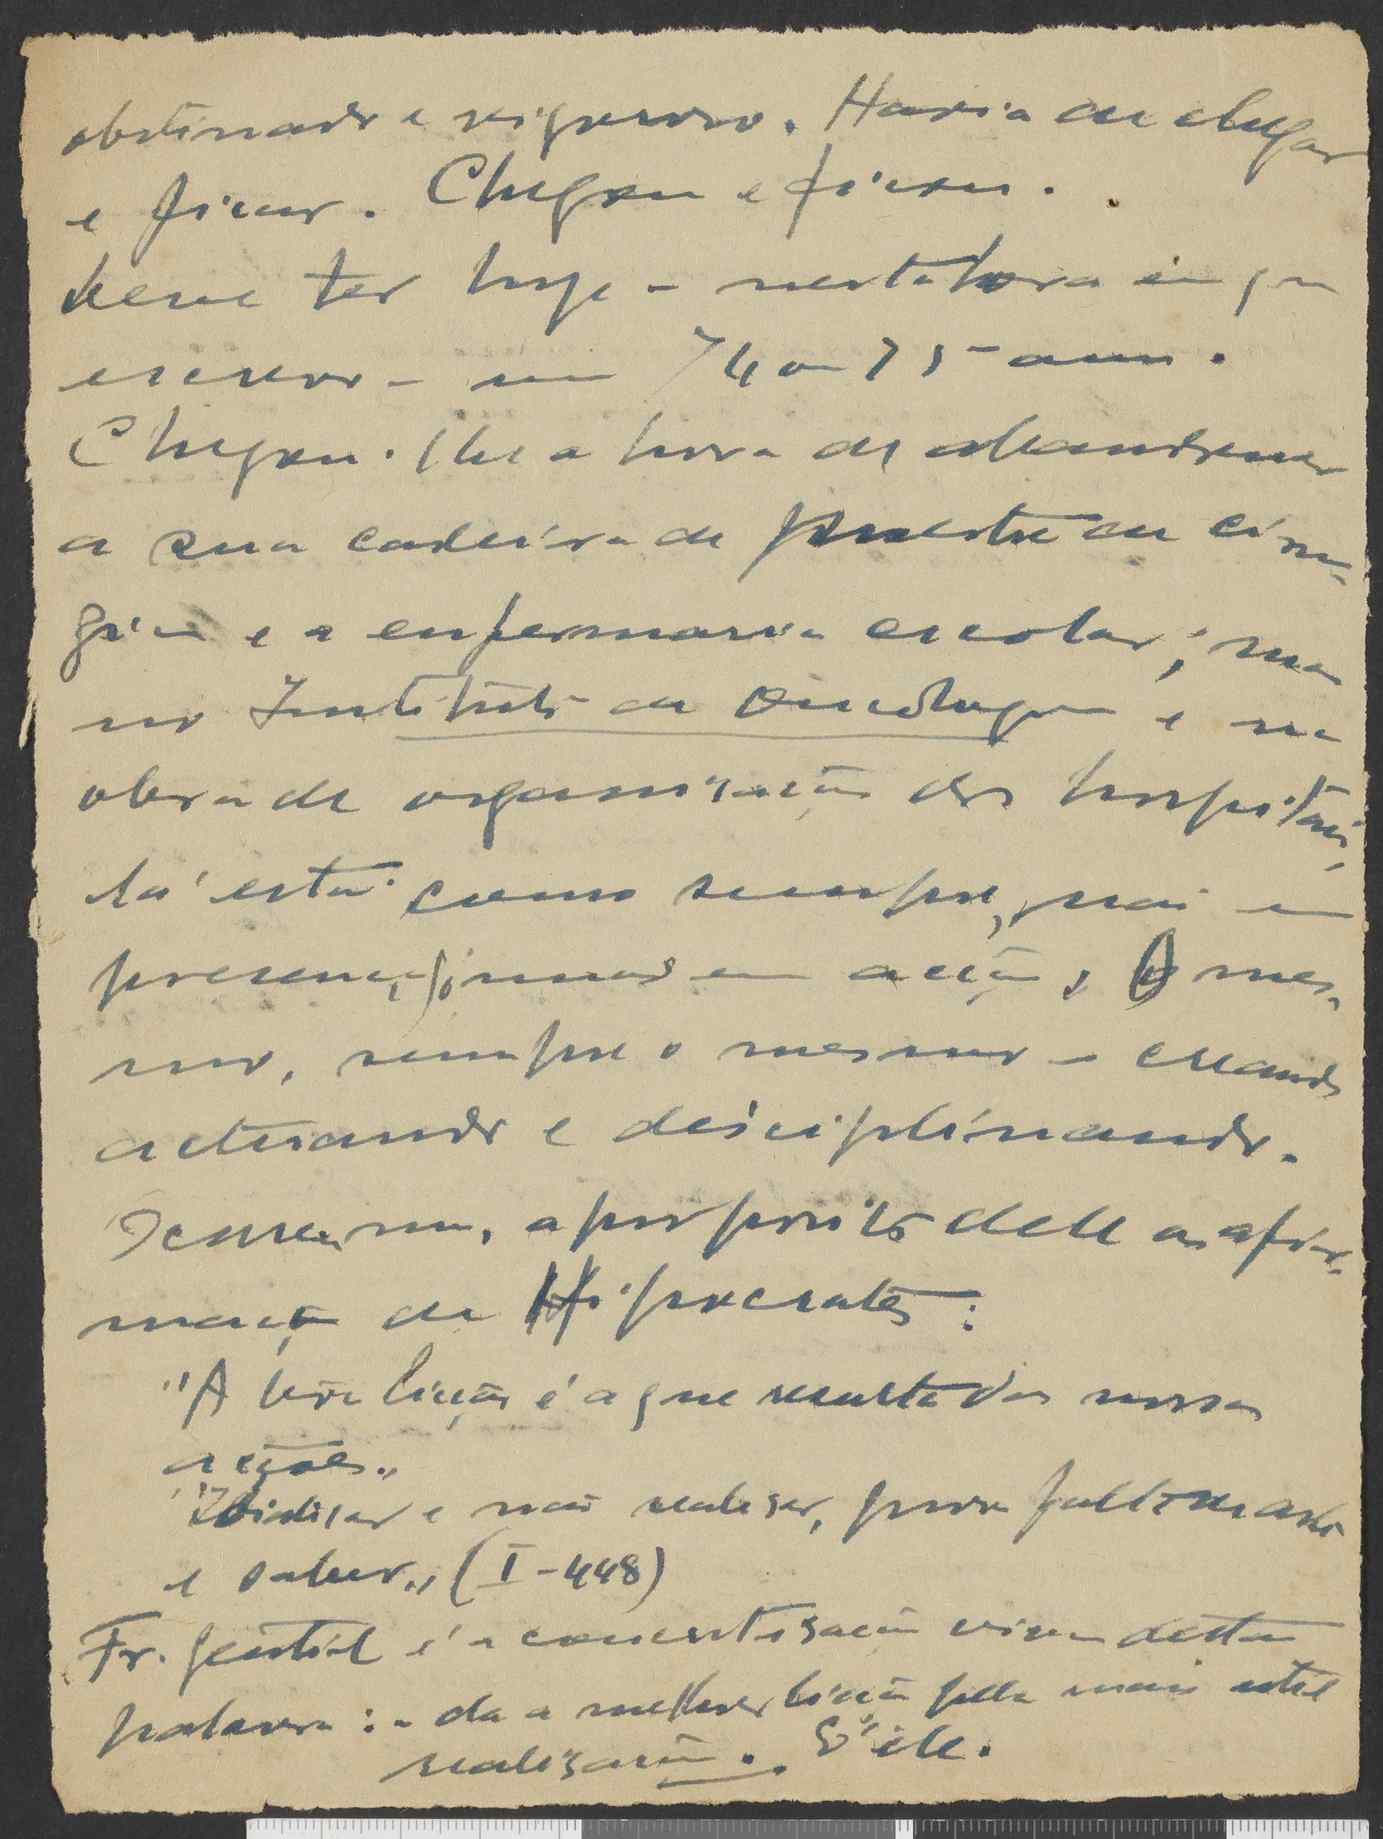 obstinado e vigoroso. Havia de chegar
e ficar. Chegou e ficou.
Deve ter hoje – nesta hora em que
escrevo – uns 74 ou 75 anos.
Chegou-lhe a hora de abandonar
a sua cadeira de mestre de cirur-
gia e a enfermaria escolar; mas
no Instituto de Oncologia e na
obra de organisação dos hospitais,
lá está como sempre, não em
presença, mas em acção. O mes-
mo, sempre o mesmo – creando
actuando e disciplinando.
me, a proposito dele as afir-
mações de Hipocrates:
"A boa lição é a que resulta das nossas
acções."
"Idialisar e não realisar, prova falta de arte
e saber." (I – 448)
Fr. Gentil é a concretisação viva destas
palavras: – da a melhor lição pela mais util
realisação. É ele.